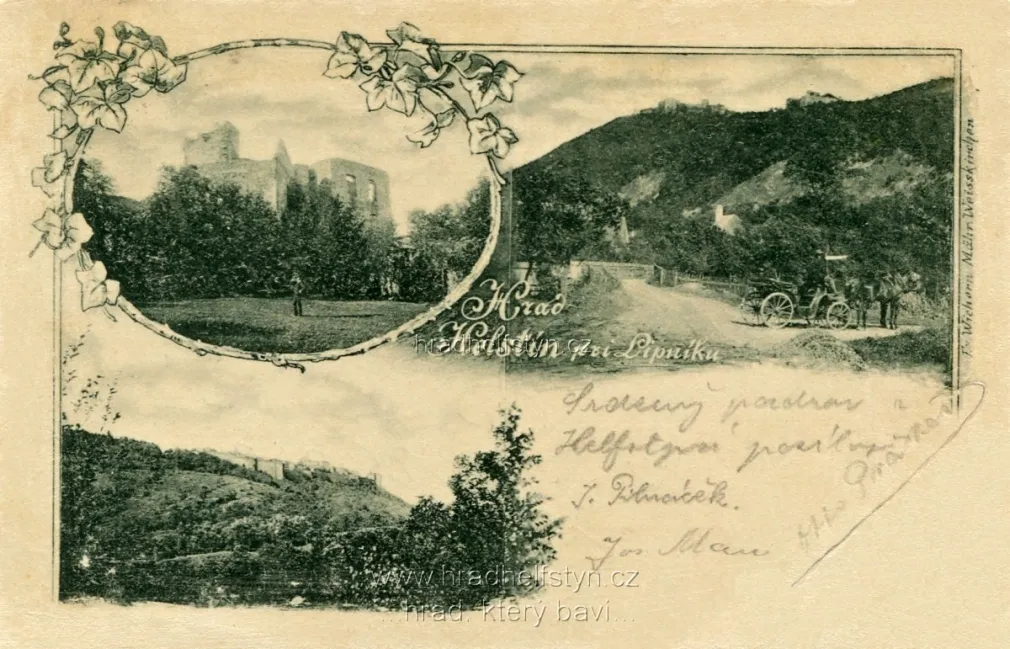 Hrad
Helfštýn při Lipníku
www.hradhelfstyn.cz
F. Wichera Mähr. Weisskirchen
Srdečný pozdrav z
Helfštýna posílají
J. Pilnáček.
Jos Man
www.hradhelfstyn.cz
...hrad, který baví...